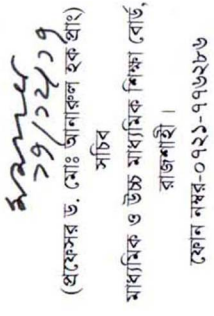 ২৭/১২/১৭
(প্রফেসর ড. মোঃ আনারুল হক প্রাং)
সচিব
মাধ্যমিক ও উচ্চ মাধ্যমিক শিক্ষা বোর্ড,
রাজশাহী।
ফোন নম্বর-০৭২১-৭৭৬২৮৬